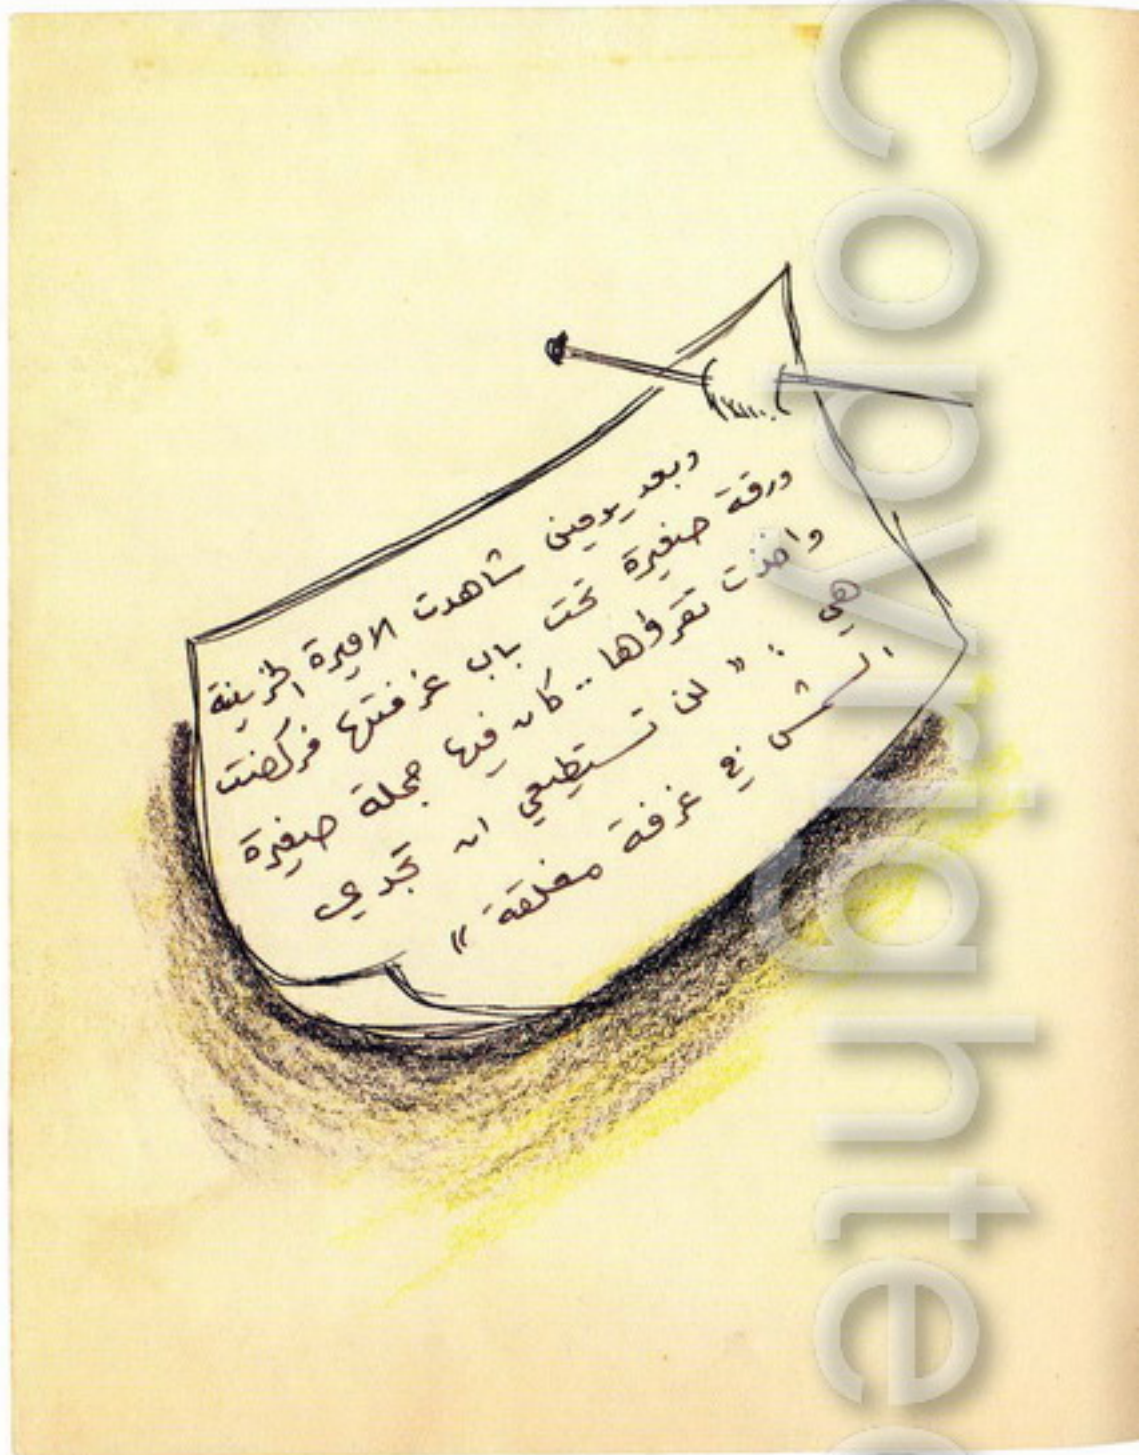 وبعد يومين شاهدت الاميرة الحزينة
ورقة صغيرة تحت باب غرفتها فركضت
واخذت تقرؤها .. كان فيها جملة صغيرة
هي : " لن تستطيعي ان تجدي
الشمس في غرفة مغلقة "
Copyrighte